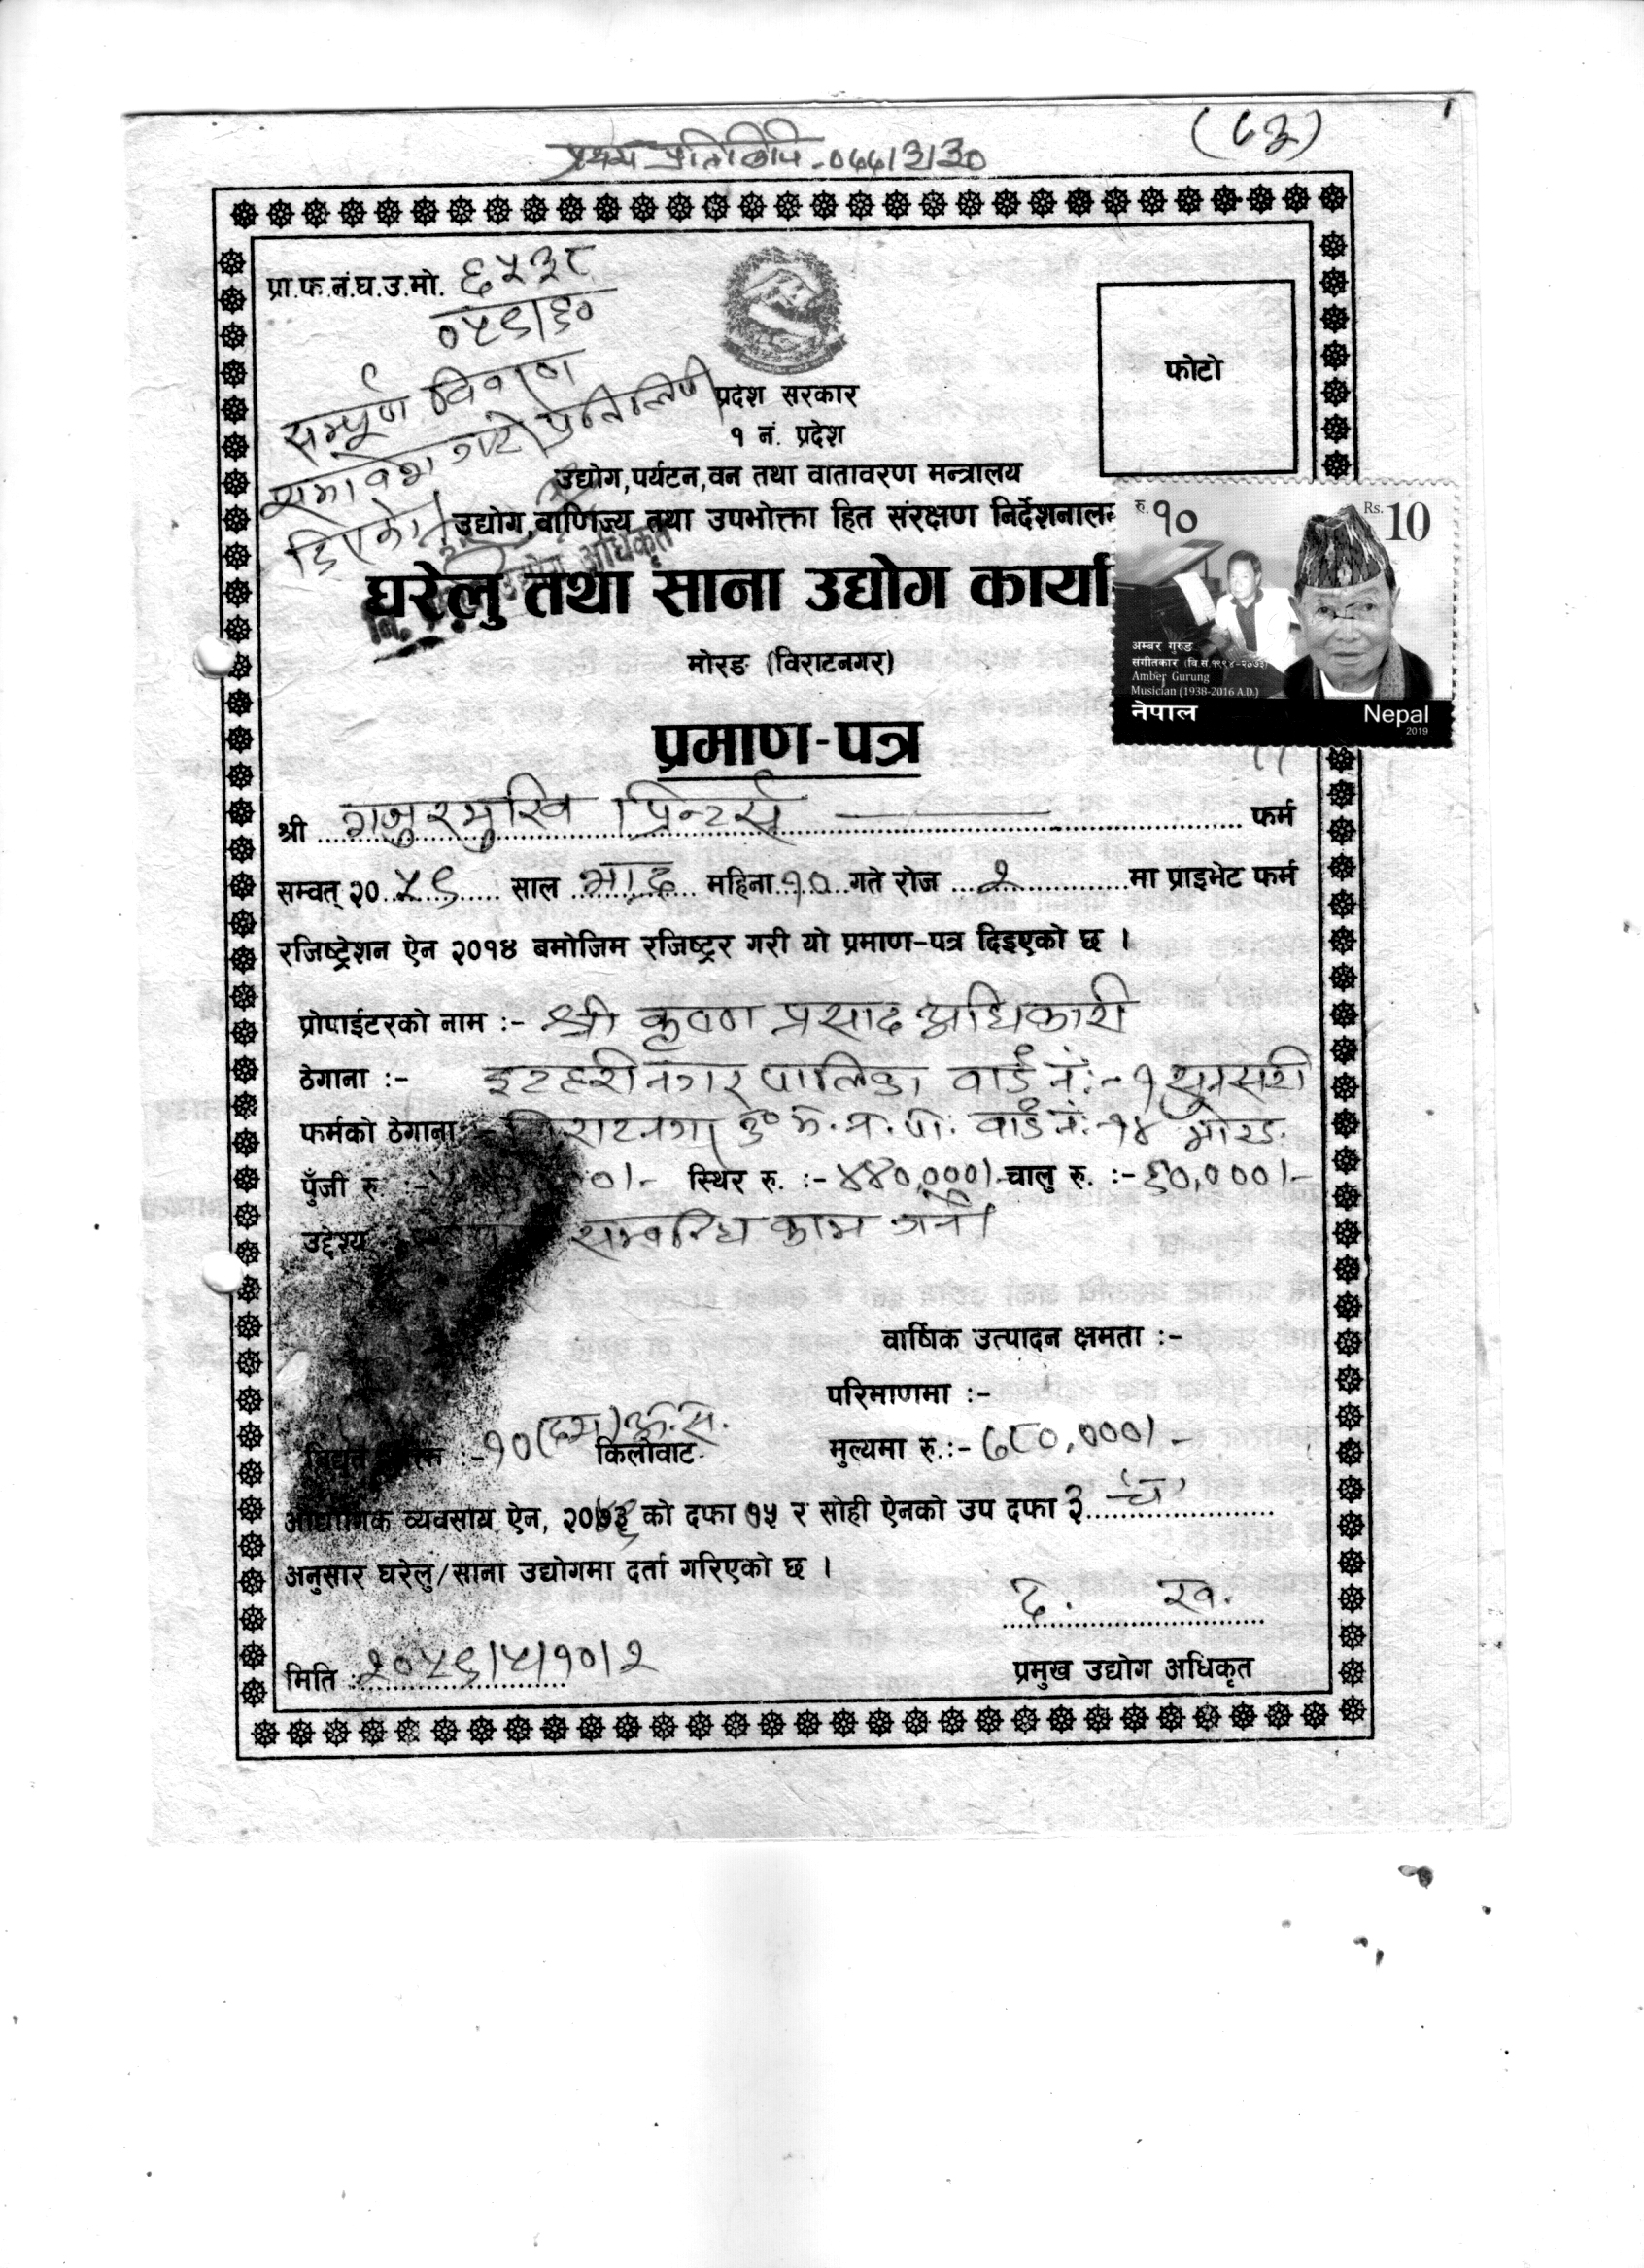 प्रथम प्रतिलिपि - ०७७/३/३०
(७३)
प्रा.फ.नं.घ.उ.मो. ६५३८
०५९/६०
सम्पूर्ण विवरण
समावेश गरी प्रतिलिपी
दिएको।
प्रदेश सरकार
१ नं. प्रदेश
फोटो
उद्योग,पर्यटन,वन तथा वातावरण मन्त्रालय
उद्योग,वाणिज्य तथा उपभोक्ता हित संरक्षण निर्देशनालय
उद्योग अधिकृत
नि.
घरेलु तथा साना उद्योग कार्या
मोरङ (विराटनगर)
रु. १०
Rs. 10
अम्बर गुरुङ
संगीतकार (वि.स.१९९४-२०७३)
Amber Gurung
Musician (1938-2016 A.D.)
नेपाल Nepal
2019
प्रमाण-पत्र
श्री गजुरमुखि प्रिन्टर्स फर्म
सम्वत् २० ५९ साल भाद्र महिना १० गते रोज २ मा प्राइभेट फर्म
रजिष्ट्रेशन ऐन २०१४ बमोजिम रजिष्ट्रर गरी यो प्रमाण-पत्र दिइएको छ ।
प्रोपाईटरको नाम :- श्री कृष्ण प्रसाद अधिकारी
ठेगाना :- इटहरी नगरपालिका वार्ड नं:- १ सुनसरी
फर्मको ठेगाना विराटनगर उ.म.न.पा. वार्ड नं:- १४ मोरङ
पुँजी रु. :- ०/- स्थिर रु. :- ४४०,०००/- चालु रु. :- ६०,०००/-
उद्देश्य सम्बन्धि काम गर्ने।
वार्षिक उत्पादन क्षमता :-
परिमाणमा :-
विद्युत :- १० (दश) किलोवाट
मुल्यमा रु.:- ७८०,०००/-
औद्योगिक व्यवसाय ऐन, २०७३ को दफा १५ र सोही ऐनको उप दफा ३ घ
अनुसार घरेलु/साना उद्योगमा दर्ता गरिएको छ ।
द. ख.
मिति :- २०५९/५/१०/२
प्रमुख उद्योग अधिकृत